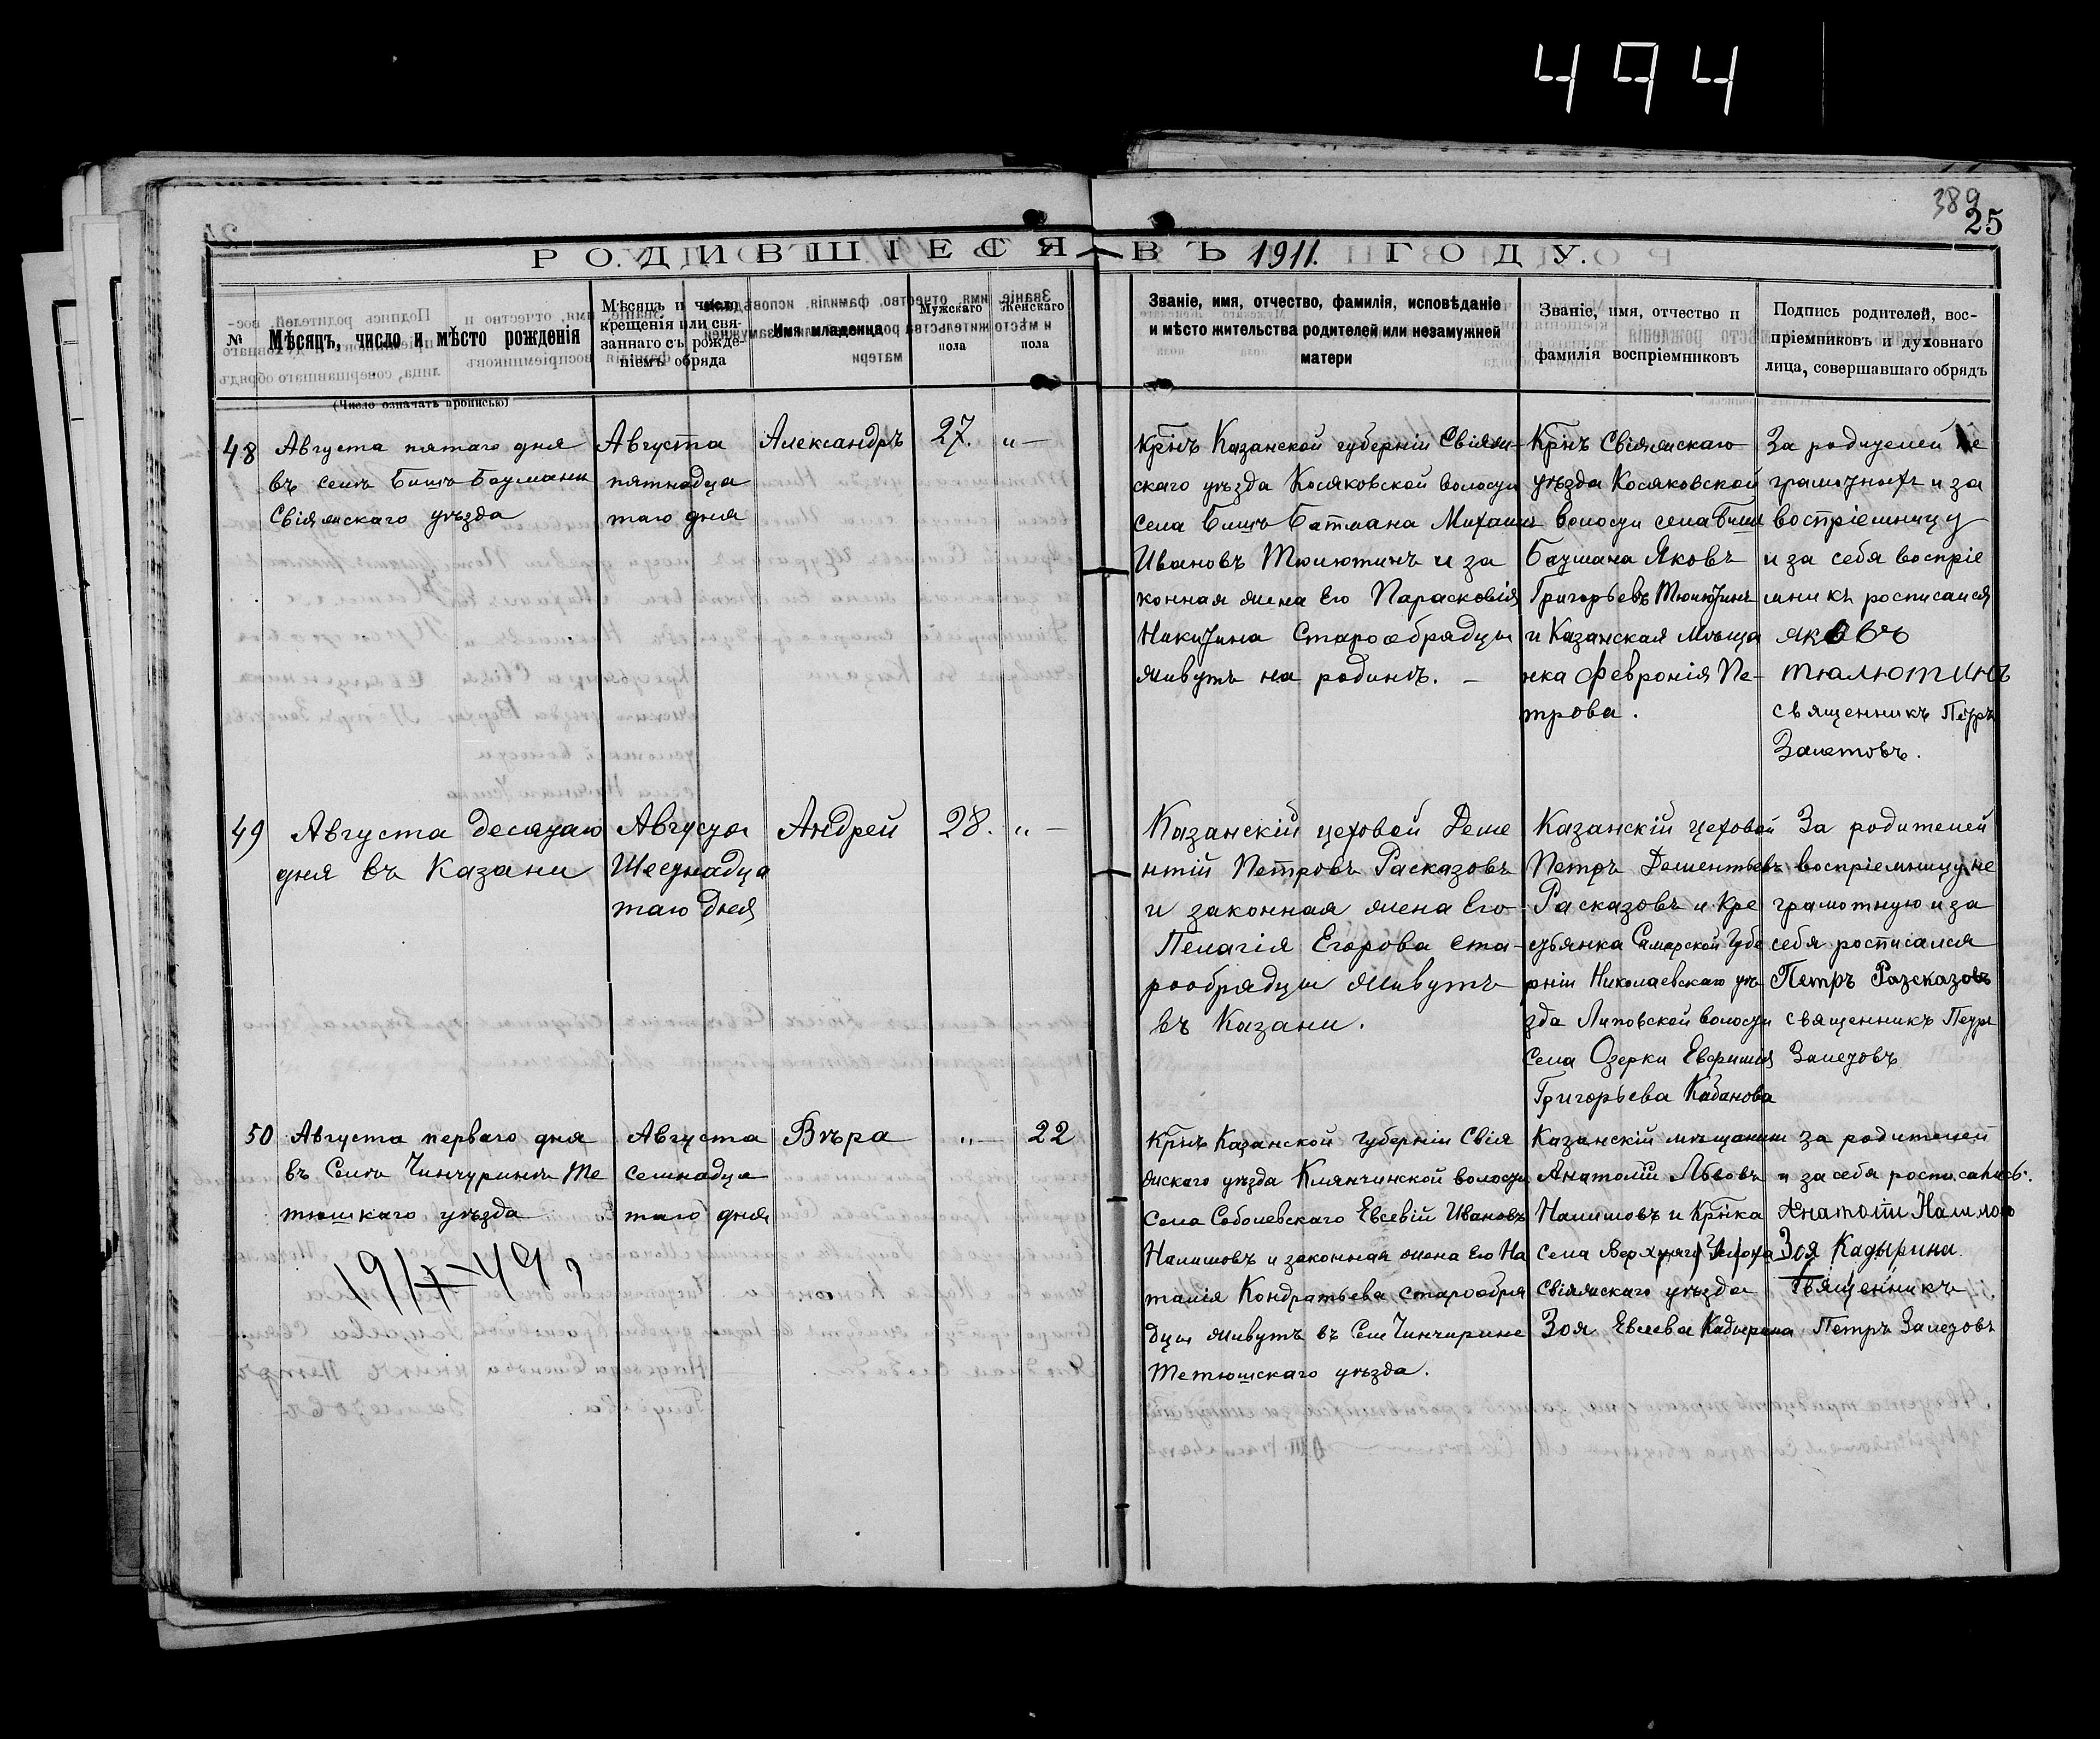 494
389
25
РОДИВШІЕСЯ ВЪ 1911. ГОДУ.
№
Мѣсяцъ, число и мѣсто рожденія
(Число означать прописью)
Мѣсяцъ и число
крещенія или свя-
заннаго съ рожде-
ніемъ обряда
Имя младенца
Мужскаго
пола
Женскаго
пола
Званіе, имя, отчество, фамилія, исповѣданіе
и мѣсто жительства родителей или незамужней
матери
Званіе, имя, отчество и
фамилія воспріемниковъ
Подпись родителей, вос-
пріемниковъ и духовнаго
лица, совершавшаго обрядъ
48
Августа пятаго дня
въ селѣ Бишъ Батмани
Свіяжскаго уѣзда
Августа
пятнадца
таго дня
Александръ
27.
„ —
Крнъ Казанской губерніи Свіяж-
скаго уѣзда Косяковской волости
села Бишъ Батмана Михаилъ
Ивановъ Тюлютинъ и за
конная жена его Парасковія
Никитина Старообрядцы
живутъ на родинѣ. —
Крнъ Свіяжскаго
уѣзда Косяковской
волости села Бишъ
Батмана Яковъ
Григорьевъ Тюлютинъ
и Казанская мѣща
нка Февронія Пе-
трова.
За родителей не
грамотныхъ и за
воспріемницу
и за себя воспріе
мникъ росписался
Яковъ
Тюлютинъ
священникъ Петръ
Залетовъ.
49
Августа десятаго
дня въ Казани
Августа
Шестнадца
таго дня
Андрей
28.
„ —
Казанскій цеховой Деме
нтій Петровъ Расказовъ
и законная жена его
Пелагія Егорова ста-
рообрядцы живутъ
въ Казани.
Казанскій цеховой
Петръ Дементьевъ
Расказовъ и кре
стьянка Самарской Губе
рніи Николаевскаго уѣ
зда Липовской волости
села Озерки Евфимія
Григорьева Кабанова
За родителей
воспріемницу не
грамотную и за
себя росписался
Петръ Разсказовъ
священникъ Петръ
Залетовъ
50
Августа перваго дня
въ Селѣ Чинчуринѣ Те
тюшкаго уѣзда
1917-49
Августа
семнадца
таго дня
Вѣра
„ —
22
Крнъ Казанской губерніи Свія
жскаго уѣзда Клянчинской волости
села Соболевскаго Евсевій Ивановъ
Налимовъ и законная жена его На
талія Кондратьева старообря
дцы живутъ въ Селе Чинчурине
Тетюшскаго уѣзда.
Казанскій мѣщанинъ
Анатолій Львовъ
Налимовъ и Крнка
села Верхняго Услона
Свіяжскаго уѣзда
Зоя Евсеева Кадырина
за родителей
и за себя росписались.
Анатолій Налимовъ
Зоя Кадырина.
Священникъ
Петръ Залетовъ